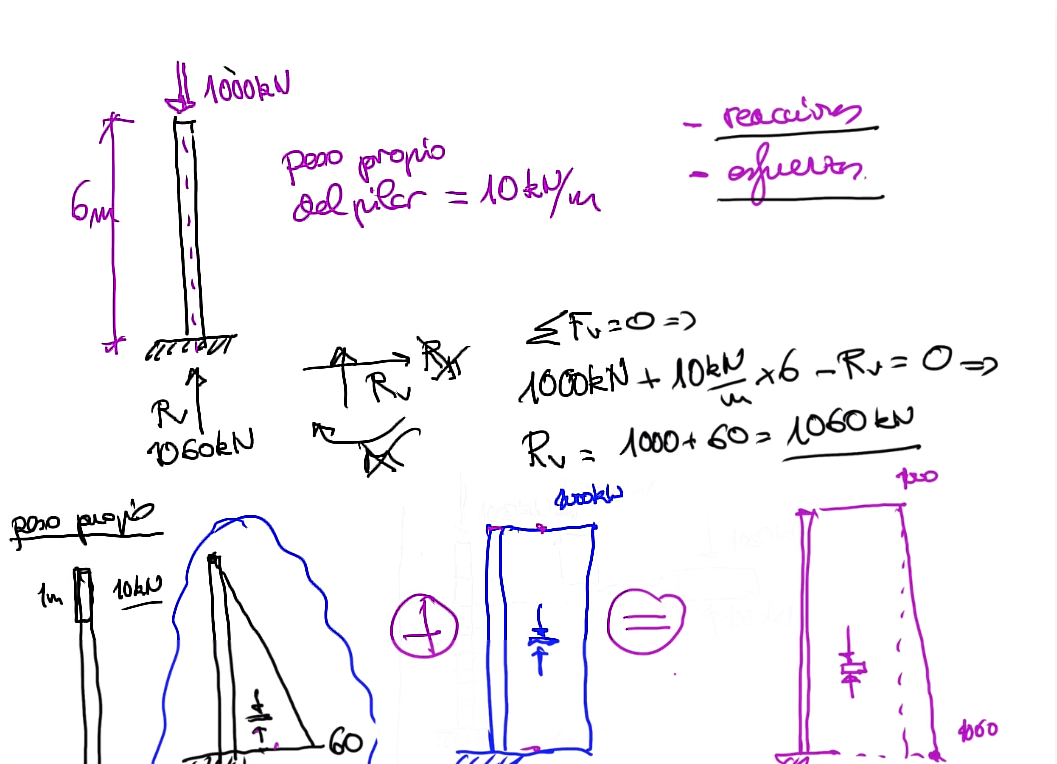 1000kN
6m
peso propio
del pilar = 10 kN/m
- reacciones
- esfuerzos.
Rv
1060kN
Rv
ΣFv = 0 =>
1000kN + 10 kN/m × 6 - Rv = 0 =>
Rv = 1000 + 60 = 1060 kN
peso propio
1m
10kN
60
+
1000kN
=
1000
1060